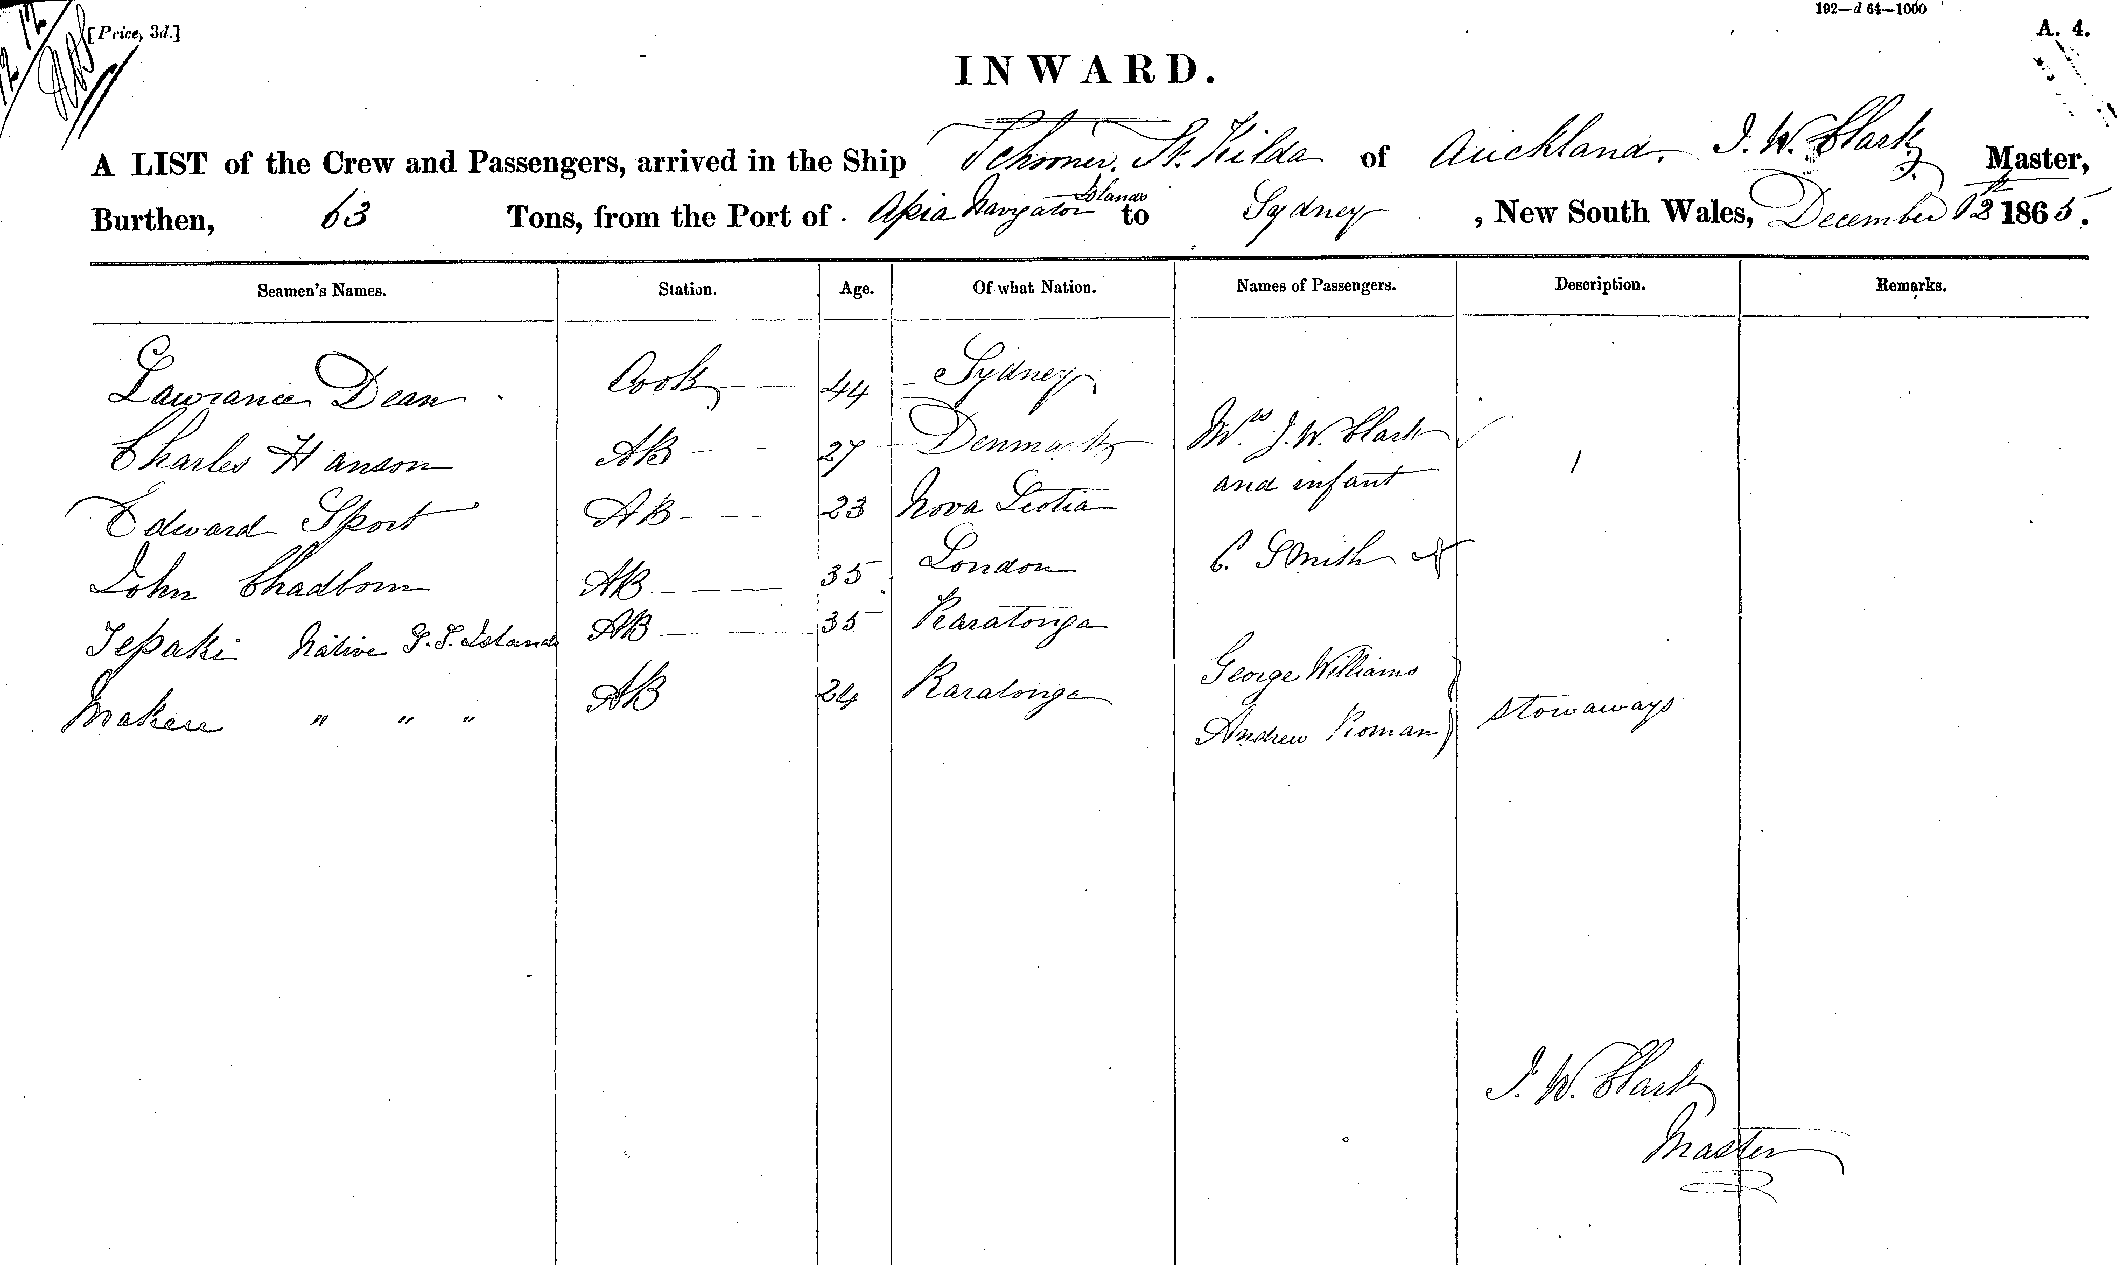 [Price, 3d.]
192—d 64—1000
A. 4.
INWARD.
A LIST of the Crew and Passengers, arrived in the Ship Schooner St. Kilda of Auckland, J. W. Clark Master,
Burthen, 63 Tons, from the Port of Apia Navigator Islands to Sydney, New South Wales, December 12th 1865.
Seamen's Names. Station. Age. Of what Nation. Names of Passengers. Description. Remarks.
Lawrance Dean Cook 44 Sydney
Charles Hanson AB 27 Denmark Mrs J. W. Clark
Edward Sport AB 23 Nova Scotia and infant
John Chadborn AB 35 London C. Smith
Tepaki Native S. S. Islands AB 35 Raratonga
George Williams
Makere " " " AB 24 Raratonga
Andrew Roman stowaways
J. W. Clark
Master